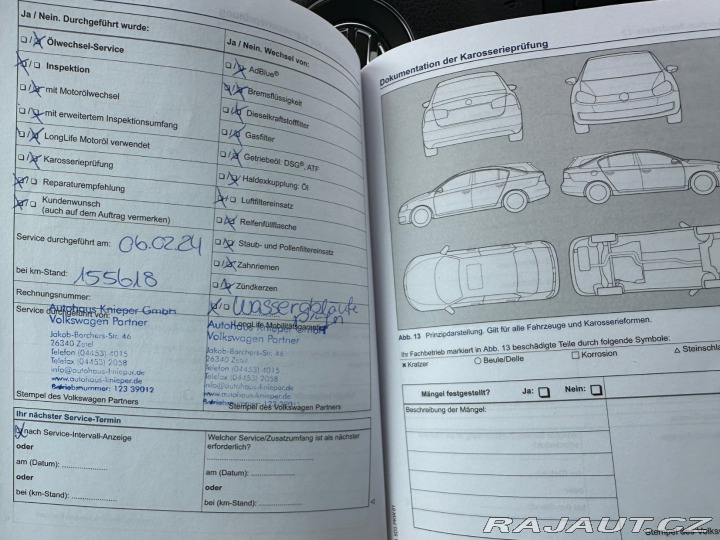 Ja / Nein. Durchgeführt wurde:
Ölwechsel-Service
Inspektion
mit Motorölwechsel
mit erweitertem Inspektionsumfang
LongLife Motoröl verwendet
Karosserieprüfung
Reparaturempfehlung
Kundenwunsch
(auch auf dem Auftrag vermerken)
Service durchgeführt am: 06.02.24
bei km-Stand: 155618
Rechnungsnummer:
Service durchgeführt von:
Autohaus Knieper GmbH
Volkswagen Partner
Jakob-Borchers-Str. 46
26340 Zetel
Telefon (04453) 4015
Telefax (04453) 2058
info@autohaus-knieper.de
www.autohaus-knieper.de
Betriebsnummer: 123 39012
Stempel des Volkswagen Partners
Ja / Nein. Wechsel von:
AdBlue®
Bremsflüssigkeit
Dieselkraftstofffilter
Gasfilter
Getriebeöl: DSG®, ATF
Haldexkupplung: Öl
Luftfiltereinsatz
Reifenfüllflasche
Staub- und Pollenfiltereinsatz
Zahnriemen
Zündkerzen
Wasserabläufe
LongLife Mobilitätsgarantie
Autohaus Knieper GmbH
Volkswagen Partner
Jakob-Borchers-Str. 46
26340 Zetel
Telefon (04453) 4015
Telefax (04453) 2058
info@autohaus-knieper.de
www.autohaus-knieper.de
Betriebsnummer: 123 39012
Stempel des Volkswagen Partners
Ihr nächster Service-Termin
nach Service-Intervall-Anzeige
oder
am (Datum):
oder
bei (km-Stand):
Welcher Service/Zusatzumfang ist als nächster
erforderlich?
am (Datum):
oder
bei (km-Stand):
Dokumentation der Karosserieprüfung
Abb. 13 Prinzipdarstellung. Gilt für alle Fahrzeuge und Karosserieformen.
Ihr Fachbetrieb markiert in Abb. 13 beschädigte Teile durch folgende Symbole:
x Kratzer ○ Beule/Delle □ Korrosion △ Steinschla
Mängel festgestellt? Ja: Nein:
Beschreibung der Mängel:
Stempel des Volksw
RAJAUT.CZ